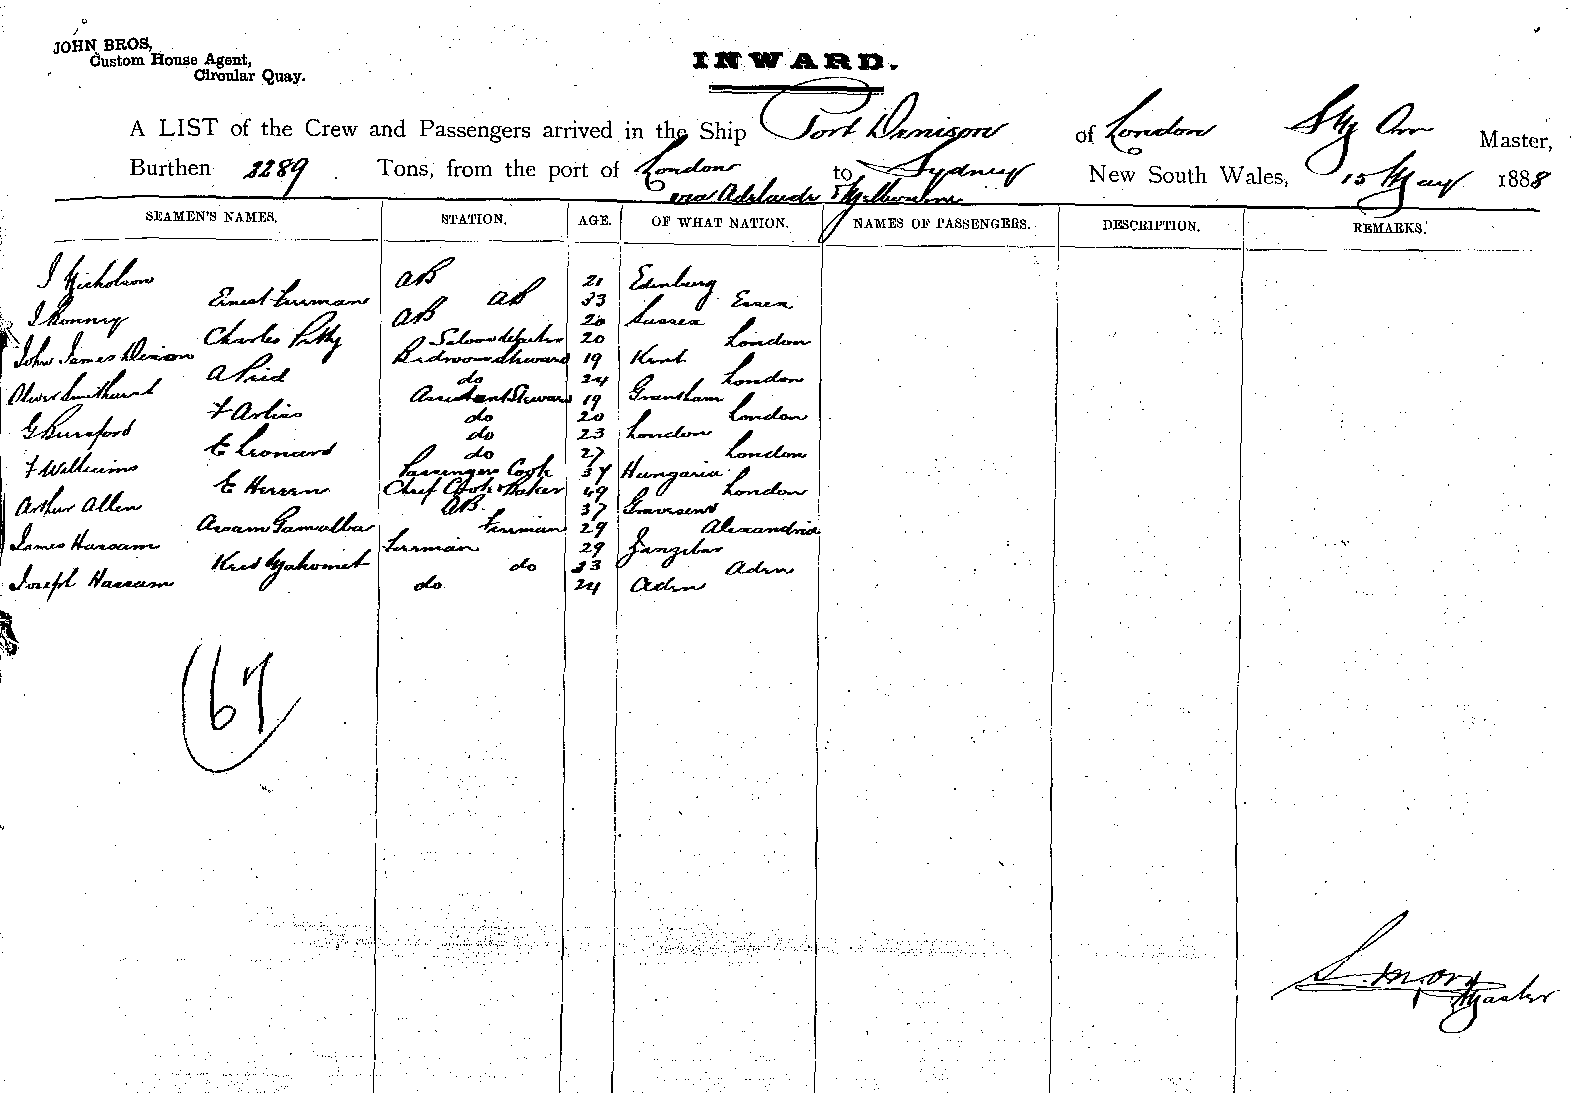 JOHN BROS,
Custom House Agent,
Circular Quay.
INWARD.
A LIST of the Crew and Passengers arrived in the Ship Port Denison of London S Orr Master,
Burthen 2289 Tons, from the port of London to Sydney New South Wales, 15 May 1888
via Adelaide & Melbourne
SEAMEN'S NAMES. STATION. AGE. OF WHAT NATION. NAMES OF PASSENGERS. DESCRIPTION. REMARKS.
J Nicholson AB 21 Edinburg
Ernest AB 33 Essex
J Bonney AB 20 Sussex
Charles 20 London
John James Bedroom Steward 19 Kent
A Reid do 24 London
Oliver Smithurst Assistant Steward 19 Grantham
F do 20 London
G do 23 London
E Leonard do 27 London
F Williams Passengers Cook 37 Hungaria
E Herren Chief Cook & Baker 49 London
Arthur Allen AB 37 Gravesend
Assam Gamalba Fireman 29 Alexandria
James Hassam Fireman 29 Zanzibar
Mahomet do 33 Aden
Joseph Hassam do 24 Aden
67
Master